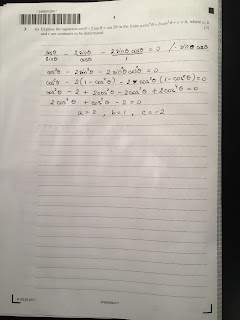 3 (i) Express the equation cot θ − 2 tan θ = sin 2θ in the form a cos⁴ θ + b cos² θ + c = 0, where a, b
and c are constants to be determined. [3]
cosθ/sinθ − 2sinθ/cosθ − 2sinθcosθ/1 = 0 / · sinθ cosθ
cos²θ − 2sin²θ − 2sin²θ cos²θ = 0
cos²θ − 2(1−cos²θ) − 2cos²θ (1−cos²θ) = 0
cos²θ − 2 + 2cos²θ − 2cos²θ + 2cos⁴θ = 0
2cos⁴θ + cos²θ − 2 = 0
a = 2 , b = 1 , c = −2